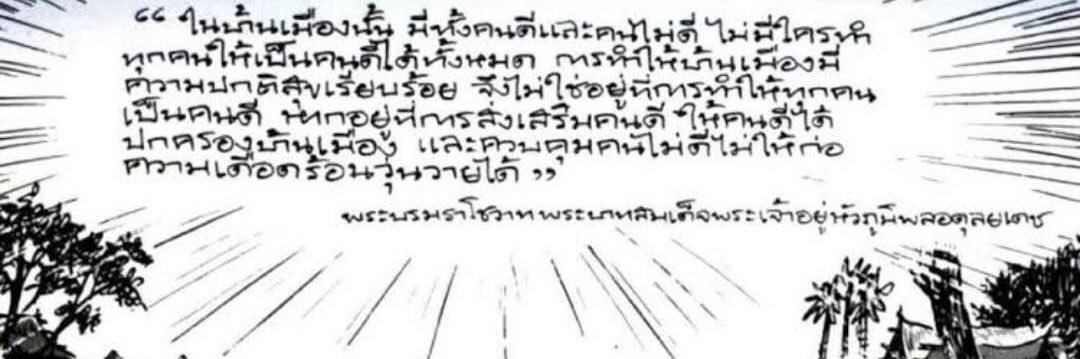 “ ในบ้านเมืองนั้น มีทั้งคนดีและคนไม่ดี ไม่มีใครทำ
ทุกคนให้เป็นคนดีได้ทั้งหมด การทำให้บ้านเมืองมี
ความปกติสุขเรียบร้อย จึงไม่ใช่อยู่ที่การทำให้ทุกคน
เป็นคนดี หากอยู่ที่การส่งเสริมคนดี ให้คนดีได้
ปกครองบ้านเมือง และควบคุมคนไม่ดีไม่ให้ก่อ
ความเดือดร้อนวุ่นวายได้ ”
พระบรมราโชวาทพระบาทสมเด็จพระเจ้าอยู่หัวภูมิพลอดุลยเดช